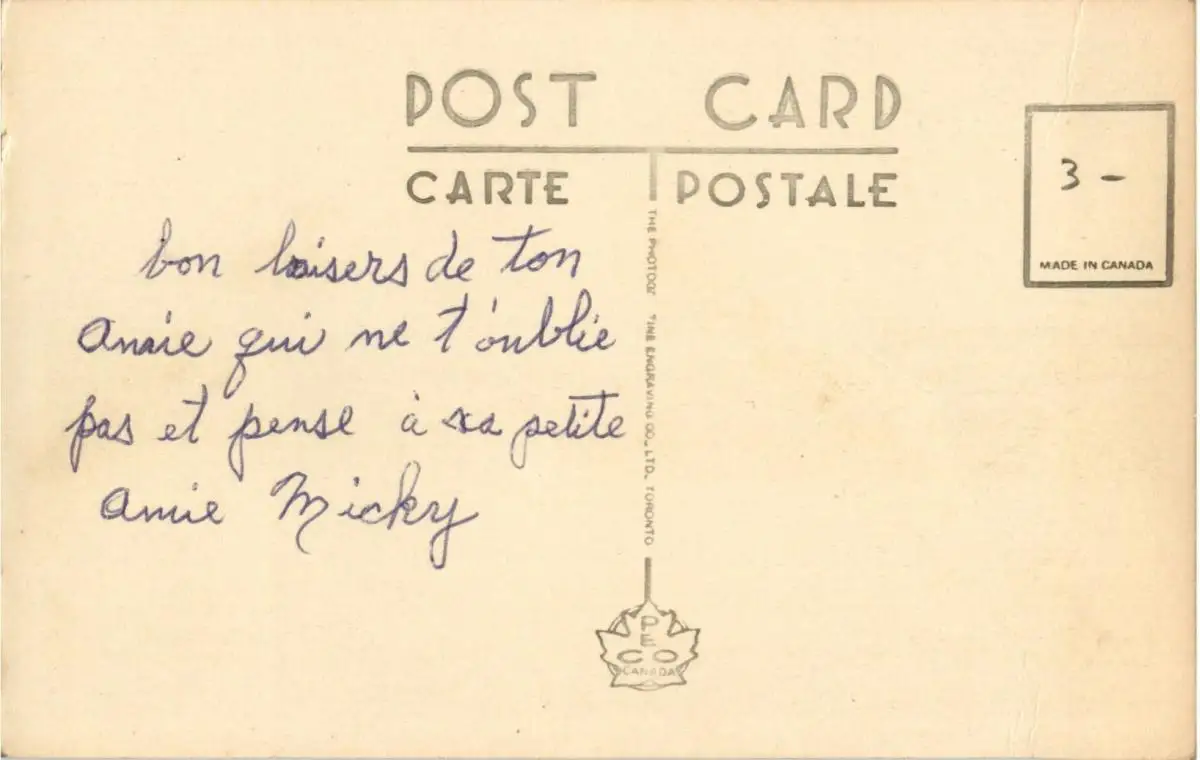 POST CARD
CARTE POSTALE
3 -
MADE IN CANADA
bon baisers de ton
amie qui ne t'oublie
pas et pense à sa petite
amie Micky
THE PHOTOG INE ENGRAVING CO., LTD., TORONTO
PECO
CANADA